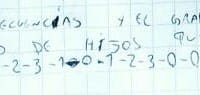 ECUENCIAS Y EL GRA
DE HIJOS
-2-3-1-0-1-2-3-0-0